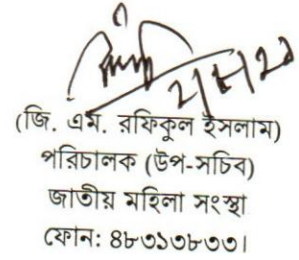 (জি. এম. রফিকুল ইসলাম)
পরিচালক (উপ-সচিব)
জাতীয় মহিলা সংস্থা
ফোন: ৪৮৩১৩৮৩৩।